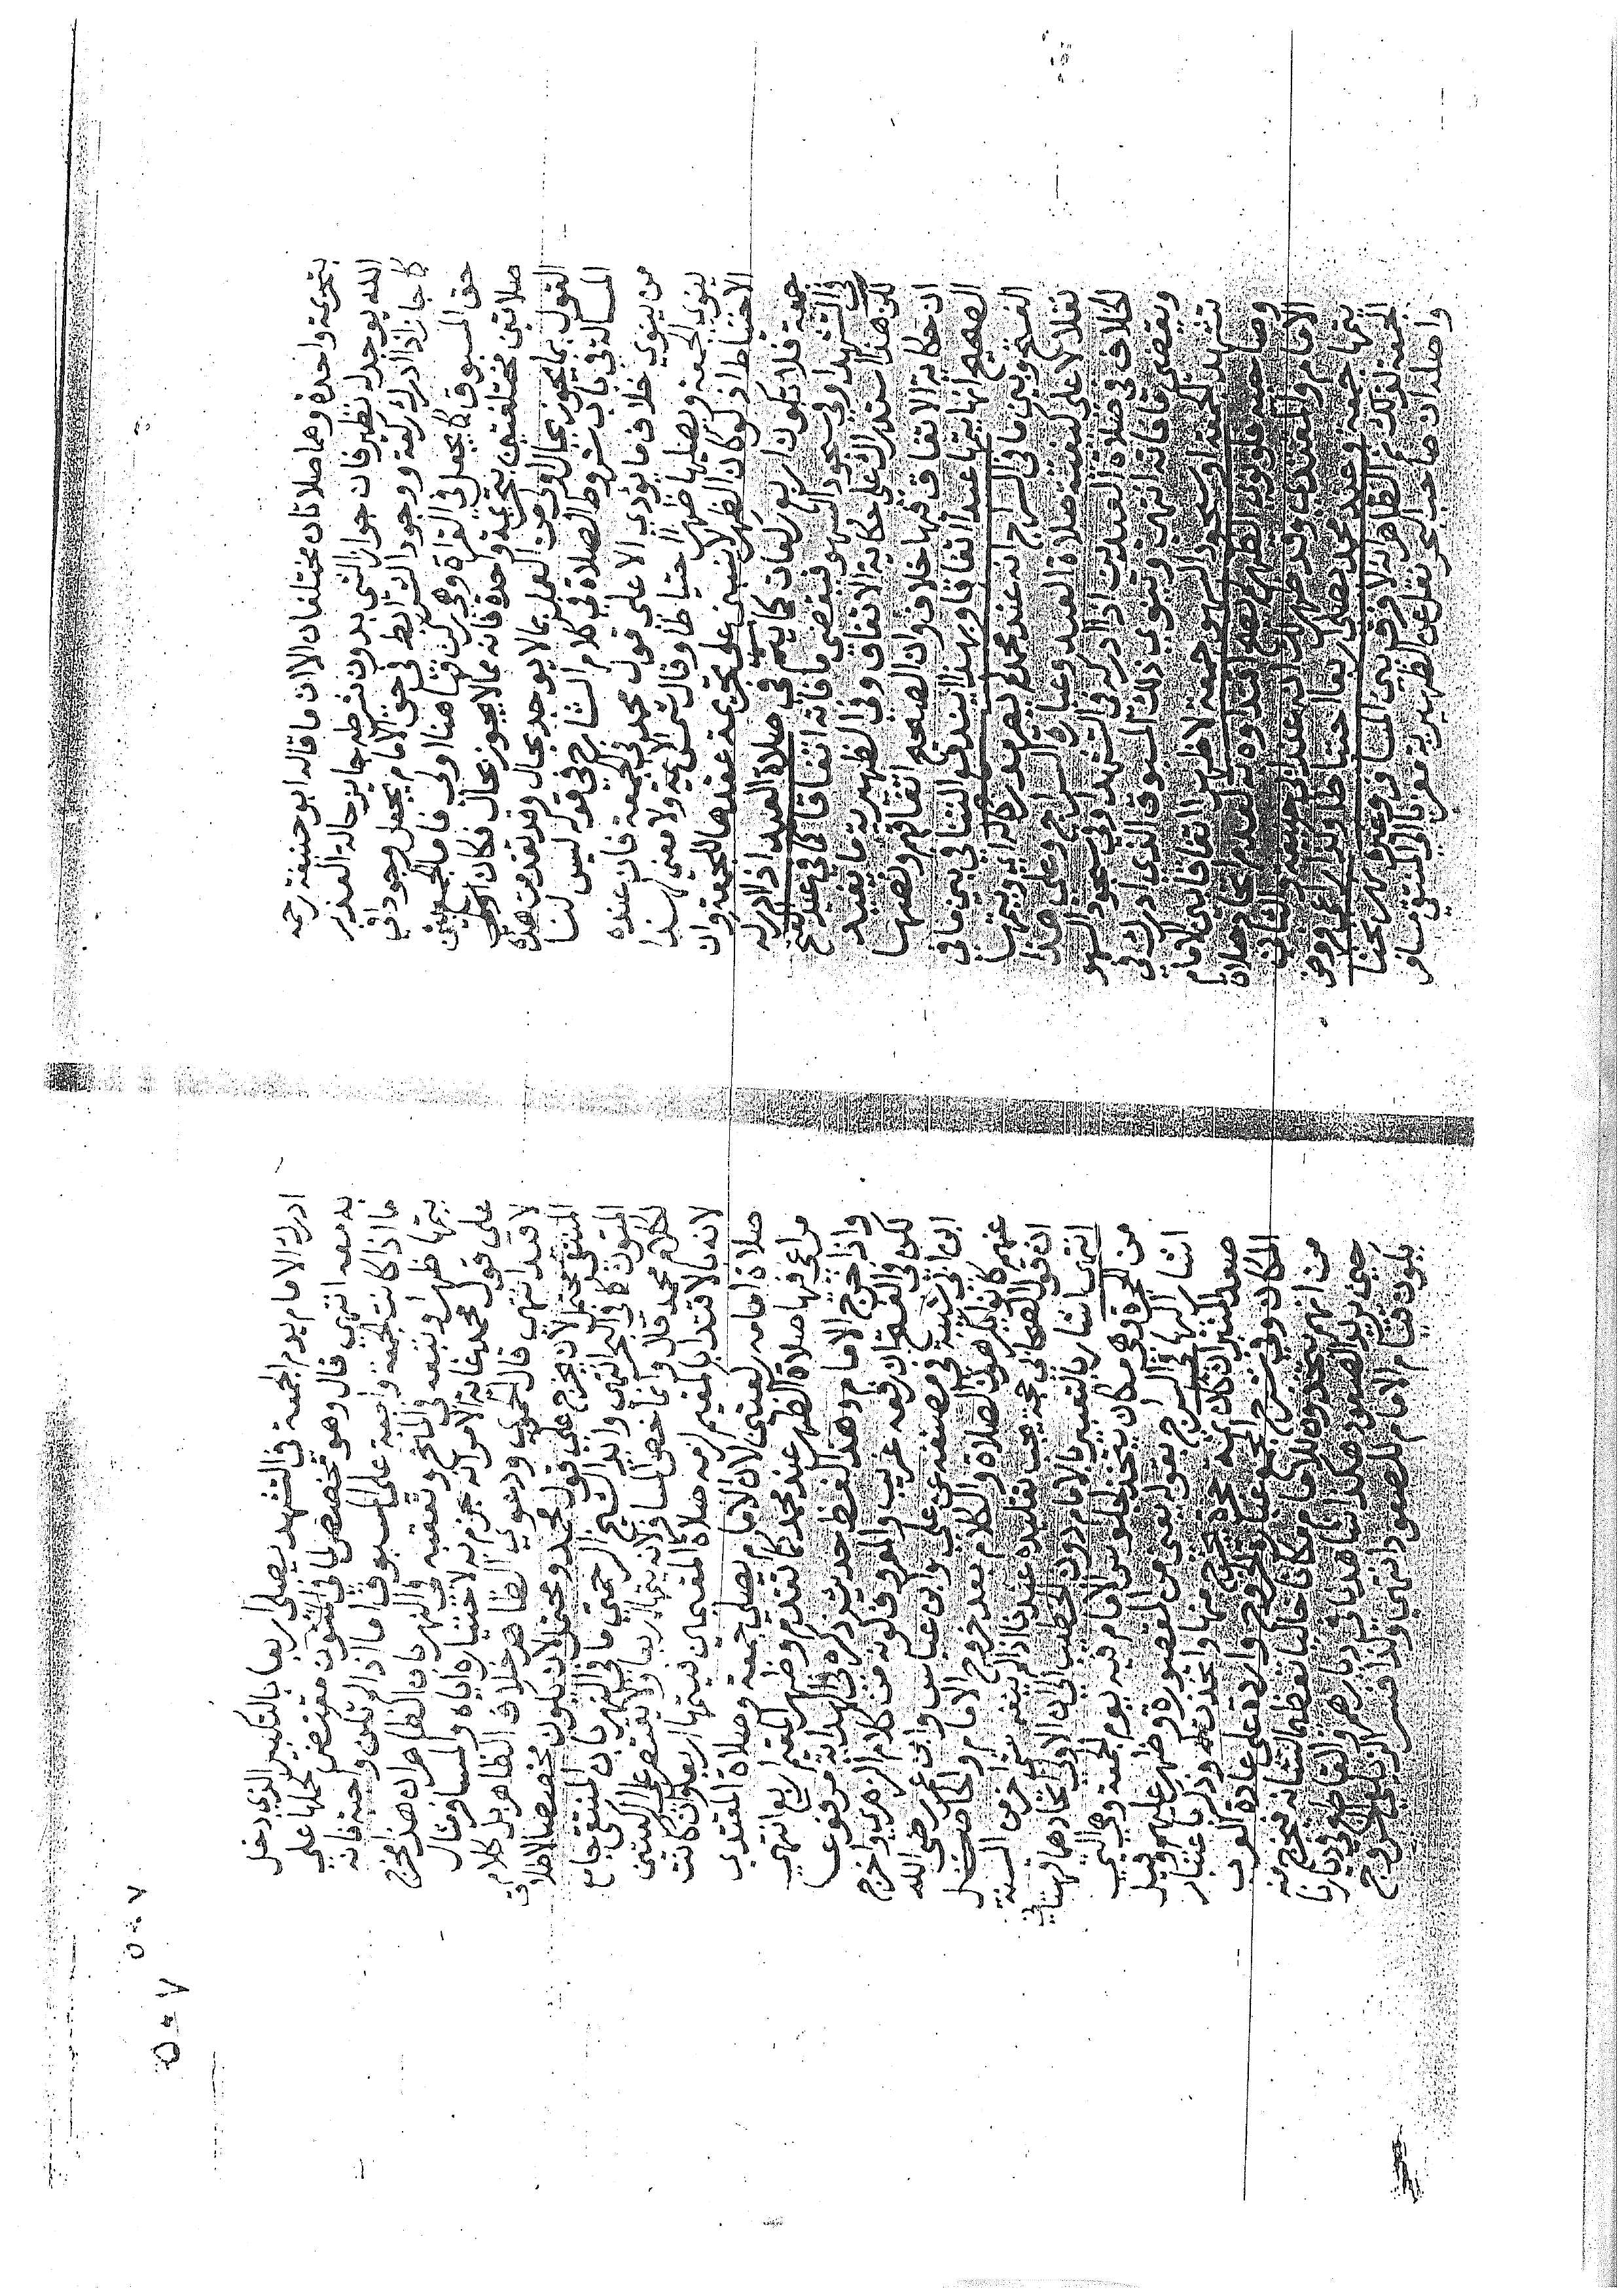 بتحريمة واحدة وهما صلاتان مختلفتان الا ان ما قاله ابو حنيفة رحمه
الله يوجد له نظير فان جواز الشي بدون شرطه جائز حالة العذر
كما جاز اذا ادرك ركعة ووجود الشرائط في حق الامام يجعل وجودا في
حق المسبوق كما يجعل في القراة وهي ركن فها هنا اولي فاما الجمع بين
صلاتين مختلفتين بتحريمة واحدة فانه مما لا يجوز بحال فكان
القول بما يجوز بحال اولي من العمل بما لا يوجد بحال وقد تقدمت هذه
المسالة في باب شروط الصلاة في كلام الشارح في قوله ليس لنا
من ينوي خلاف ما يؤدي الا علي قول محمد في الجمعة فان عنده
ينوي الجمعة ويصليها ظهرا احتياطا وقال شمس الايمة ولا معني لهذا
الاحتياط اذ لو كان الظهر لا ينبني علي تحريمة عقدها للجمعة وان
جمعة فلا تكون اربع ركعات كما يتم في صلاة العيد اذا ادركه
في التشهد او في سجود السهو فيقضي ما فاته اتفاقا كما في عيد الفتح
لكن هذا استدراك علي حكاية الاتفاق وفي الظهيرية ما يفيد
ان حكاية الاتفاق فيها خلاف وان الصحيح اتفاقهم ونصها
الصحيح انها يتمها عيدا اتفاقا وبهذا يندفع التنافي بين ما في
الفتح وبين ما في السراج انه عند محمد لم يصر مدركا له اي ويتمها
نفلا لا علي كيفية صلاة العيد وعبارة السراج وعلي هذا
الخلاف في صلاة العيدين اذا ادركه في التشهد او في سجود السهو
ويقضي ما فاته انتهي وينوي ذلك المسبوق الذي ادرك في
تشهد الجمعة او سجود السهو جمعة لا ظهرا اتفاقا الامام
وصاحبيه فلو نوي الظهر لم يصح اقتداوه به لعدم اتحاد صلاة
الامام والمقتدي وقد ظهر لك ان عند ابي حنيفة والثاني
يتمها جمعة وعند محمد يصلي اربعا احتياطا ولذا راعي
الجمعة لذلك ثم الظاهر انه لا فرق بين المسافر وغيره نهر بحثا
واصله ان صاحب البحر نقل عن الظهيرية معزيا الي المنتقي مسافر
ادرك الامام يوم الجمعة في التشهد يصلي اربعا بالتكبير الذي دخل
به معه انتهي قال وهو مخصص لما في المتون مقتض لحملها علي
ما اذا كانت الجمعة واجبة علي المسبوق اما اذا لم تكن واجبة فانه
يتمها ظهرا وتبعه في المنح وتعقبه في النهر بان الظاهر ان هذا مخرج
علي قول محمد غاية الامر انه جزم به لاختياره اياه والمسافر مثال
لا قيد انتهي قال الحموي ودعوي الظاهر خلاف الظاهر بل كلام
المنتقي محتمل لان يخرج علي قول محمد ومحتمل لان يكون مخصصا لاطلاق
المتون كما في البحر انتهي وايد الشيخ الرحمتي ما في النهر بان المنتقي جامع
لكلام محمد قال وانما خص المسافر لانه يتمها اربعا ولا يقتصر علي ركعتين
لانه بالاقتدا بالمقيم لزمه صلاة المقيمين فيتمها اربعا وان كانت
صلاة امامه ركعتين لان الامام يصلي جمعة وصلاة المقتدي
مراعي فيها صلاة الظهر عند محمد كما تقدم وظهر المقيم اربع انتهي
واذا خرج الامام وهذا لفظ حديث ذكره في الهداية مرفوعا
لكن في الفتح ان رفعه غريب والمعروف كونه من كلام الزهري واخرج
ابن ابي شيبة في مصنفه عن علي وابن عباس وابن عمر رضي الله
عنهم كانوا يكرهون الصلاة والكلام بعد خروج الامام والحاصل
ان قول الصحابي حجة يجب تقليده عندنا اذا لم ينفه شي اخر من السنة
انتهي اشار بالتعبير بالامام دون الخطيب الي ان الاولي اتحادهما قهستاني
من الحجرة وهي مكان يتخذ لجلوس الامام فيه يوم الجمعة وهي التي
اشار اليها في السراج بقوله يعني من المقصورة وظهر عليهم وقيل
صعد المنبر ان كان ثمة حجرة يخرج منها واتخذت وذكر باعتبار
المكان وفي شرح المجمع عبارة الخروج واردة علي عادة العرب
من انهم يتخذون للامام مكانا خاليا تعظيما لشانه فيخرج منه
حين يريد الصعود هكذا شاهدناه في ديارهم والقاطع في ديارنا
يكون قيام الامام للصعود انتهي وكذا فسر الزيلعي الخروج
٥٠٧
٥٠٧